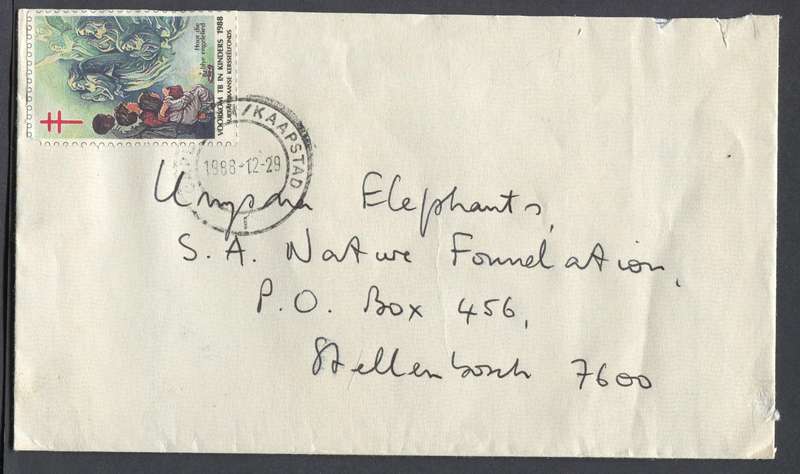 Hoor die
blye engelelied
VOORKOM TB IN KINDERS 1988
SUID-AFRIKAANSE KERSSEËLFONDS
/KAAPSTAD
1988-12-29
1
Elephants,
S. A. Nature Foundation,
P. O. Box 456,
Stellenbosch 7600